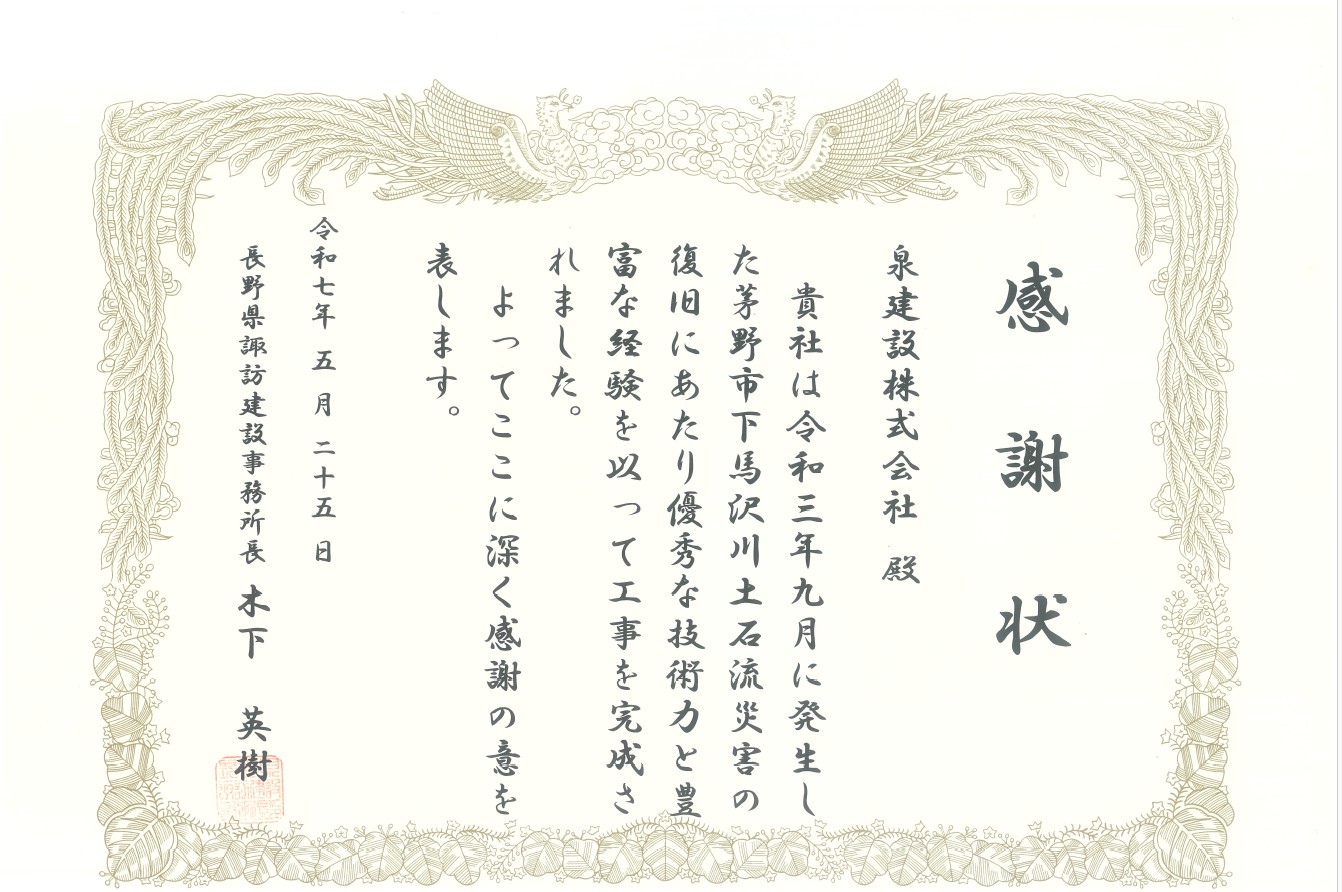 感謝状
泉建設株式会社 殿
貴社は令和三年九月に発生し
た茅野市下馬沢川土石流災害の
復旧にあたり優秀な技術力と豊
富な経験を以って工事を完成さ
れました。
よってここに深く感謝の意を
表します。
令和七年 五月 二十五日
長野県諏訪建設事務所長 木下 英樹